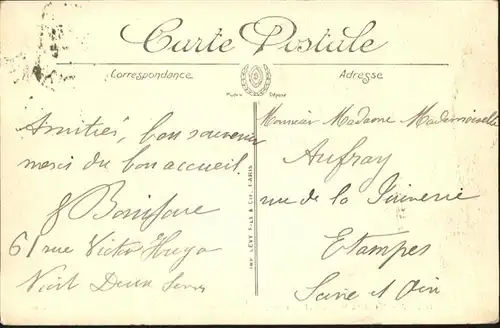 Carte Postale
Correspondance
Adresse
Modèle Déposé
Amitiés, bon souvenir
merci du bon accueil.
Boniface
61 rue Victor Hugo
Niort Deux Sevres
IMP. LÉVY FILS & CIE. PARIS
Monsieur Madame Mademoiselle
Aufray
rue de la Juiverie
Etampes
Seine et Oise